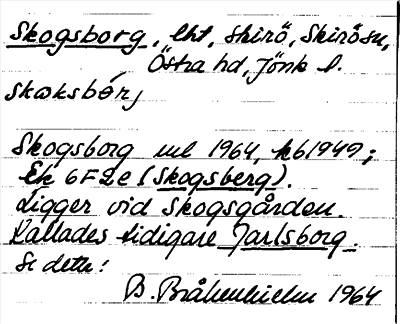 Skogsborg, lht, Skirö, Skirö sn,
Östra hd, Jönk l.
skoksbórj
Skogsborg uul 1964, kb 1949;
Ek 6F2e (Skogsberg).
Ligger vid Skogsgården.
Kallades tidigare Jarlsborg.
Se detta!
B. Bråkenhielm 1964